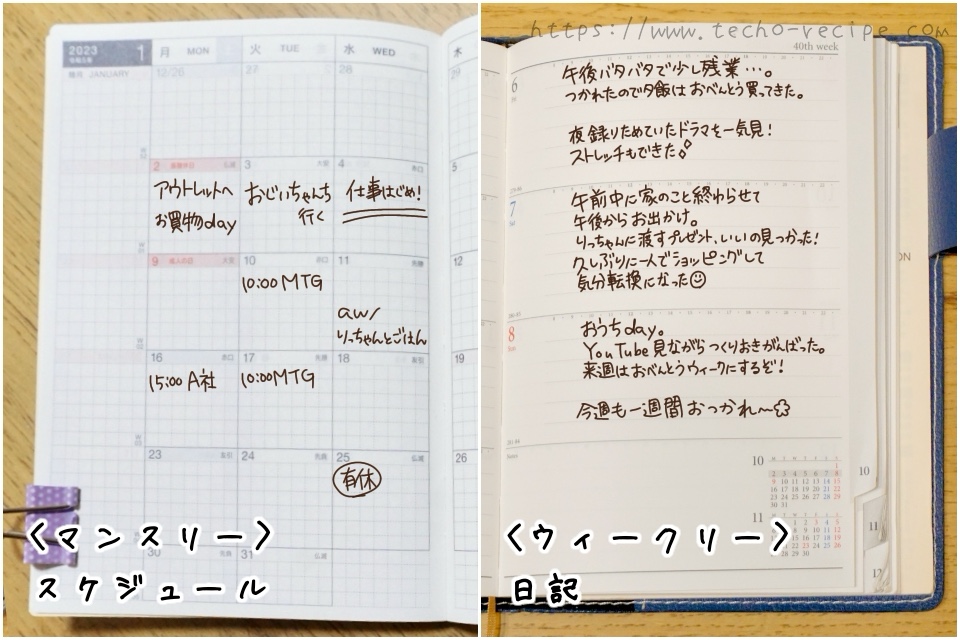 2023
1
月 MON
火 TUE
水 WED
木
JANUARY
12/26
27
28
29
2
3
4
5
アウトレットへ
お買物day
おじいちゃんち
行く
仕事はじめ!
9 成人の日
10
11
12
10:00 MTG
aw/
りっちゃんとごはん
16
17
18
19
15:00 A社
10:00 MTG
23
24
25
26
有休
30
31
<マンスリー>
スケジュール
https://www.techo-recipe.com
40th week
6
午後バタバタで少し残業…。
つかれたので夕飯はおべんとう買ってきた。
夜録りためていたドラマを一気見!
ストレッチもできた
7
午前中に家のこと終わらせて
午後からお出かけ。
りっちゃんに渡すプレゼント、いいの見つかった!
久しぶりに一人でショッピングして
気分転換になった☺
8
おうちday。
YouTube見ながらつくりおきがんばった。
来週はおべんとうウィークにするぞ!
今週も一週間おつかれ〜
10
11
10
11
12
<ウィークリー>
日記